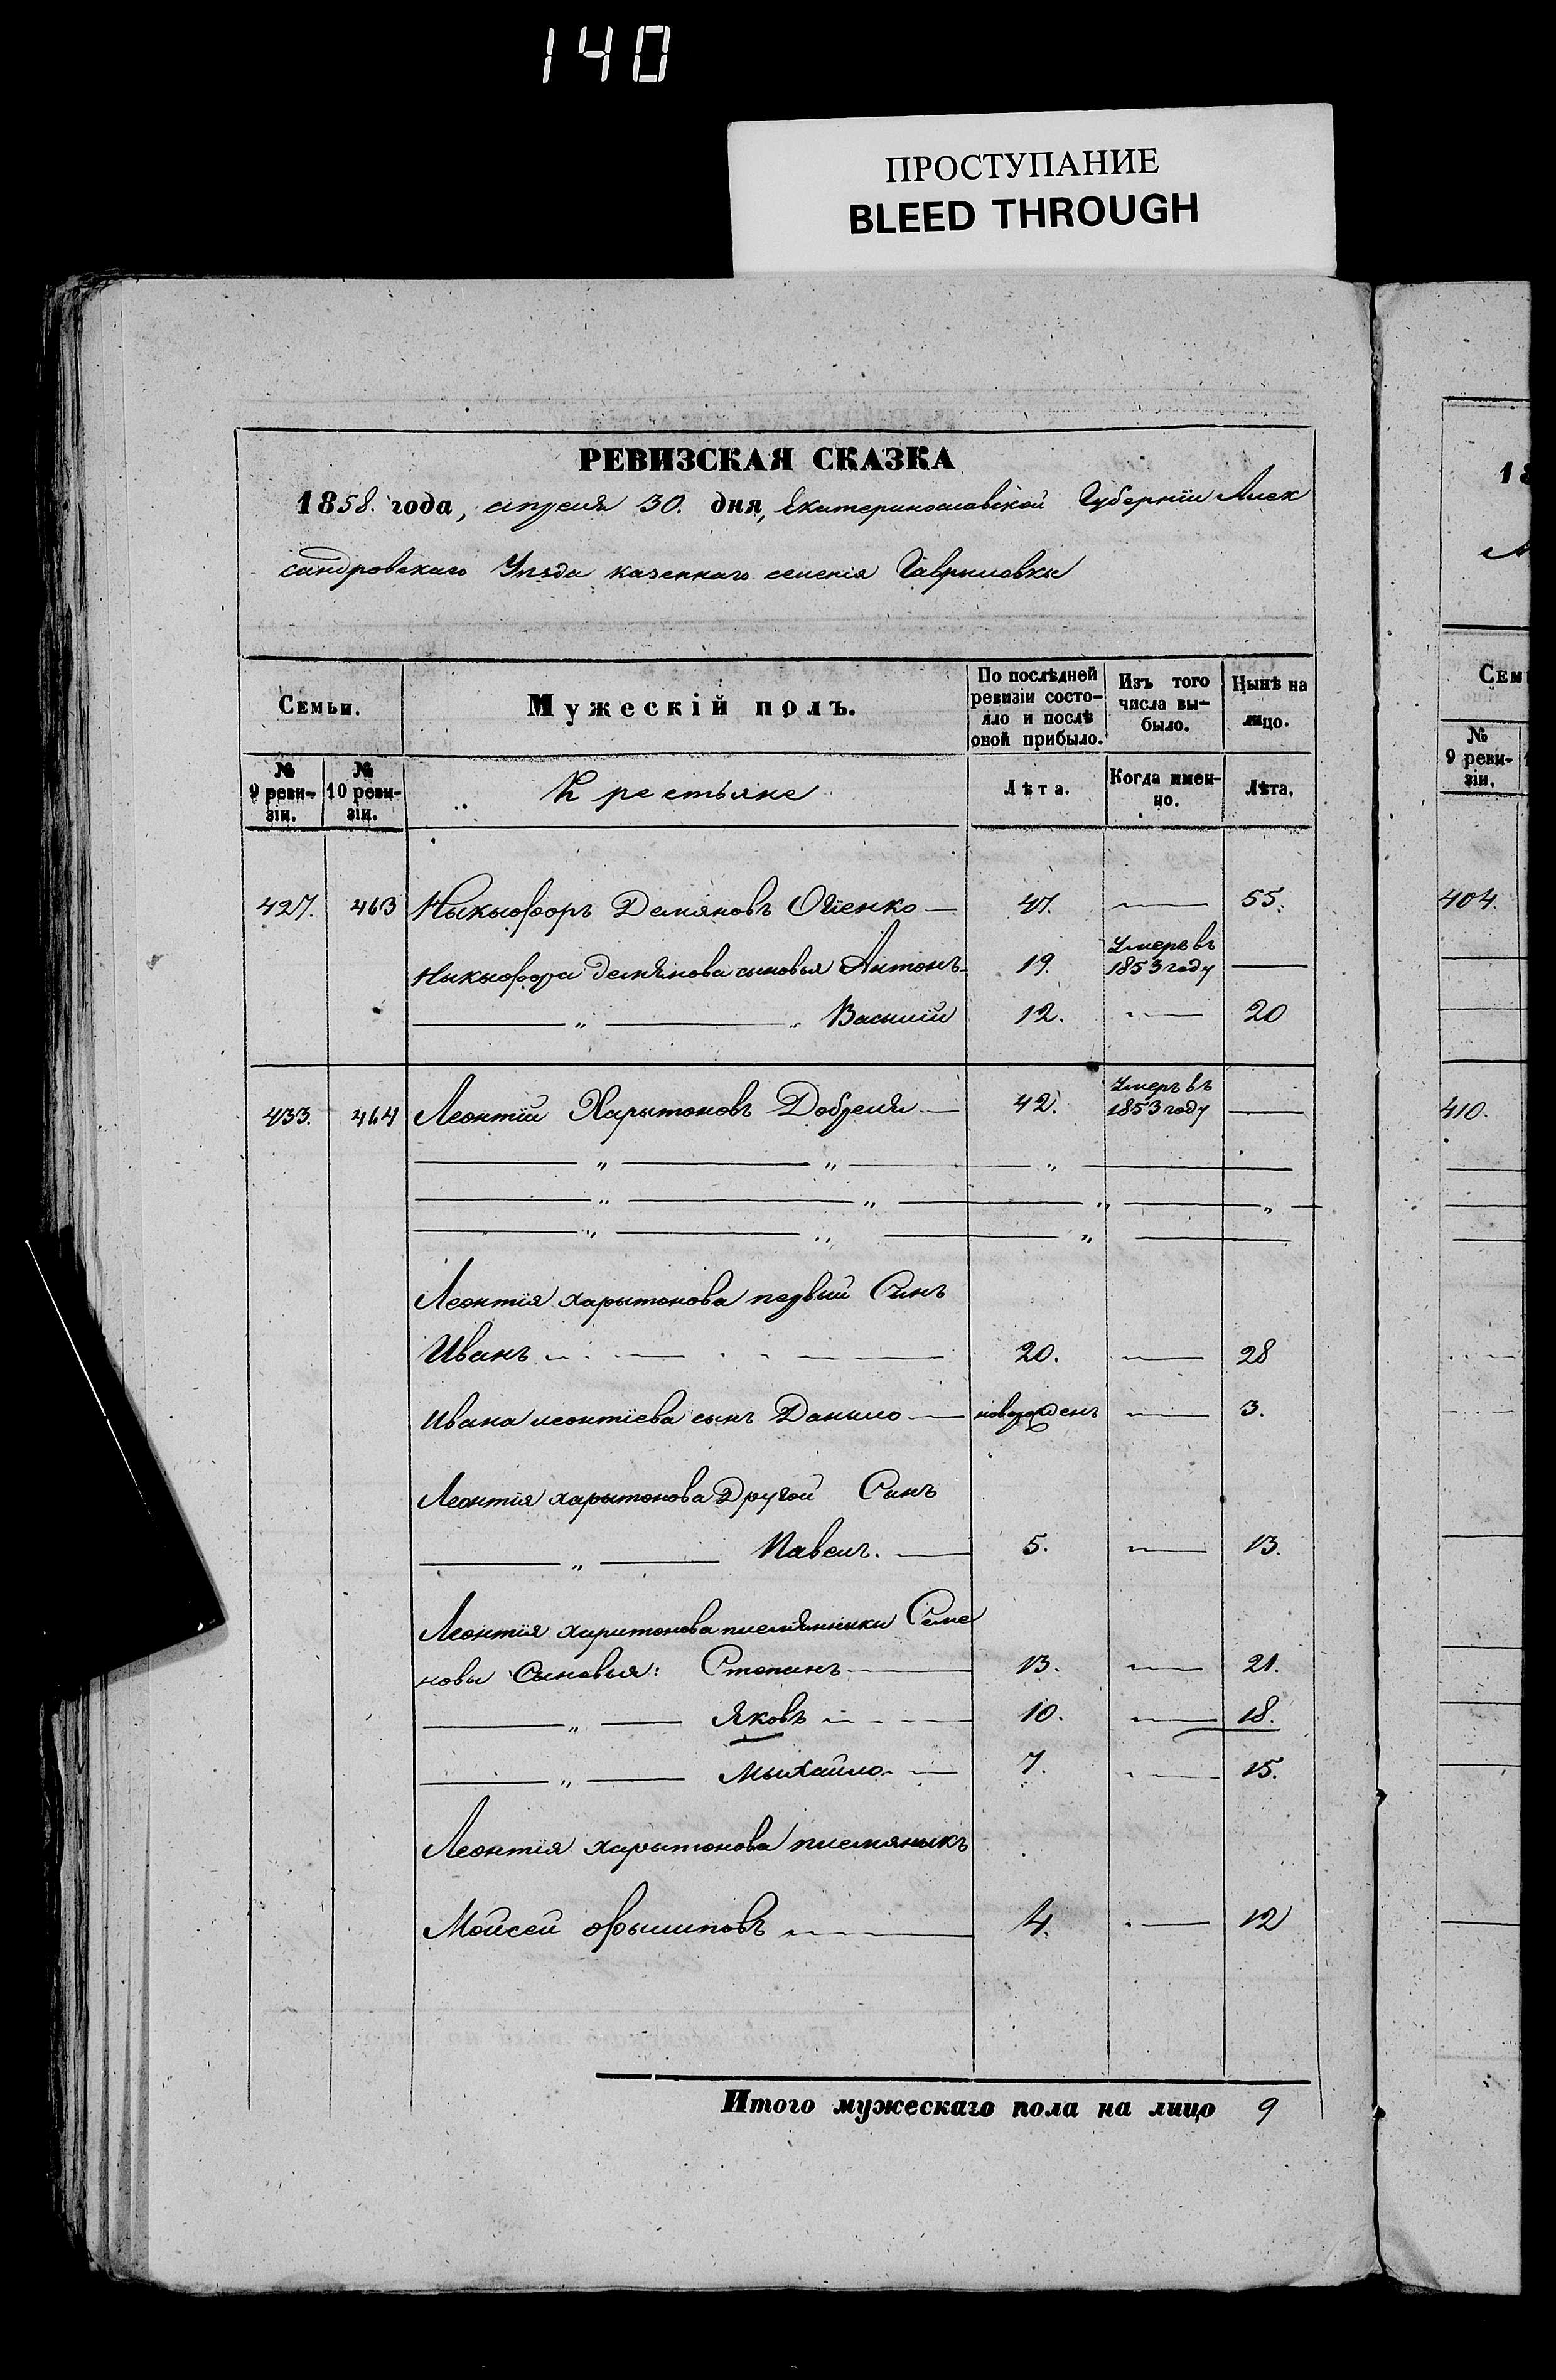 140
ПРОСТУПАНИЕ
BLEED THROUGH
РЕВИЗСКАЯ СКАЗКА
1858. года, апреля 30. дня, Екатеринославской Губернїи Алек
сандровскаго Уѣзда казеннаго селенія Гаврыловки
Семьи.
Мужескій полъ.
По послѣдней ревизіи состо-яло и послѣ оной прибыло.
Изъ того числа вы-было.
Нынѣ на лицо.
№ 9 реви-зіи.
№ 10 реви-зіи.
Крестьяне
Лѣта.
Когда имен-но.
Лѣта.
427. 463 Ныкыфоръ Демяновъ — 47. — 55.
Ныкыфора демянова сыновья Антонъ 19. Умеръ въ 1853 году —
— „ — „ Васылій 12. — 20
433. 464 Леонтій Харытоновъ Добреля — 42. Умеръ въ 1853 году —
— „ — „ — „ —
— „ — „ — „ — „ —
— „ — „ — „ —
Леонтія харытонова первый Сынъ
Иванъ — 20. — 28
Ивана леонтїева сынъ Данило — новорожденъ — 3.
Леонтія харытонова Другой Сынъ
— „ — Павелъ. — 5. — 13.
Леонтія харитонова племянныки Семе
новы Сыновья: Степанъ — 13. — 21.
— „ — Яковъ — 10. — 18.
— „ — Мыхайло — 7. — 15.
Леонтія харытонова племяныкъ
Мойсей фылиповъ — 4. — 12
Итого мужескаго пола на лицо 9
18
Сем
№ 9 реви-зіи.
404.
410.